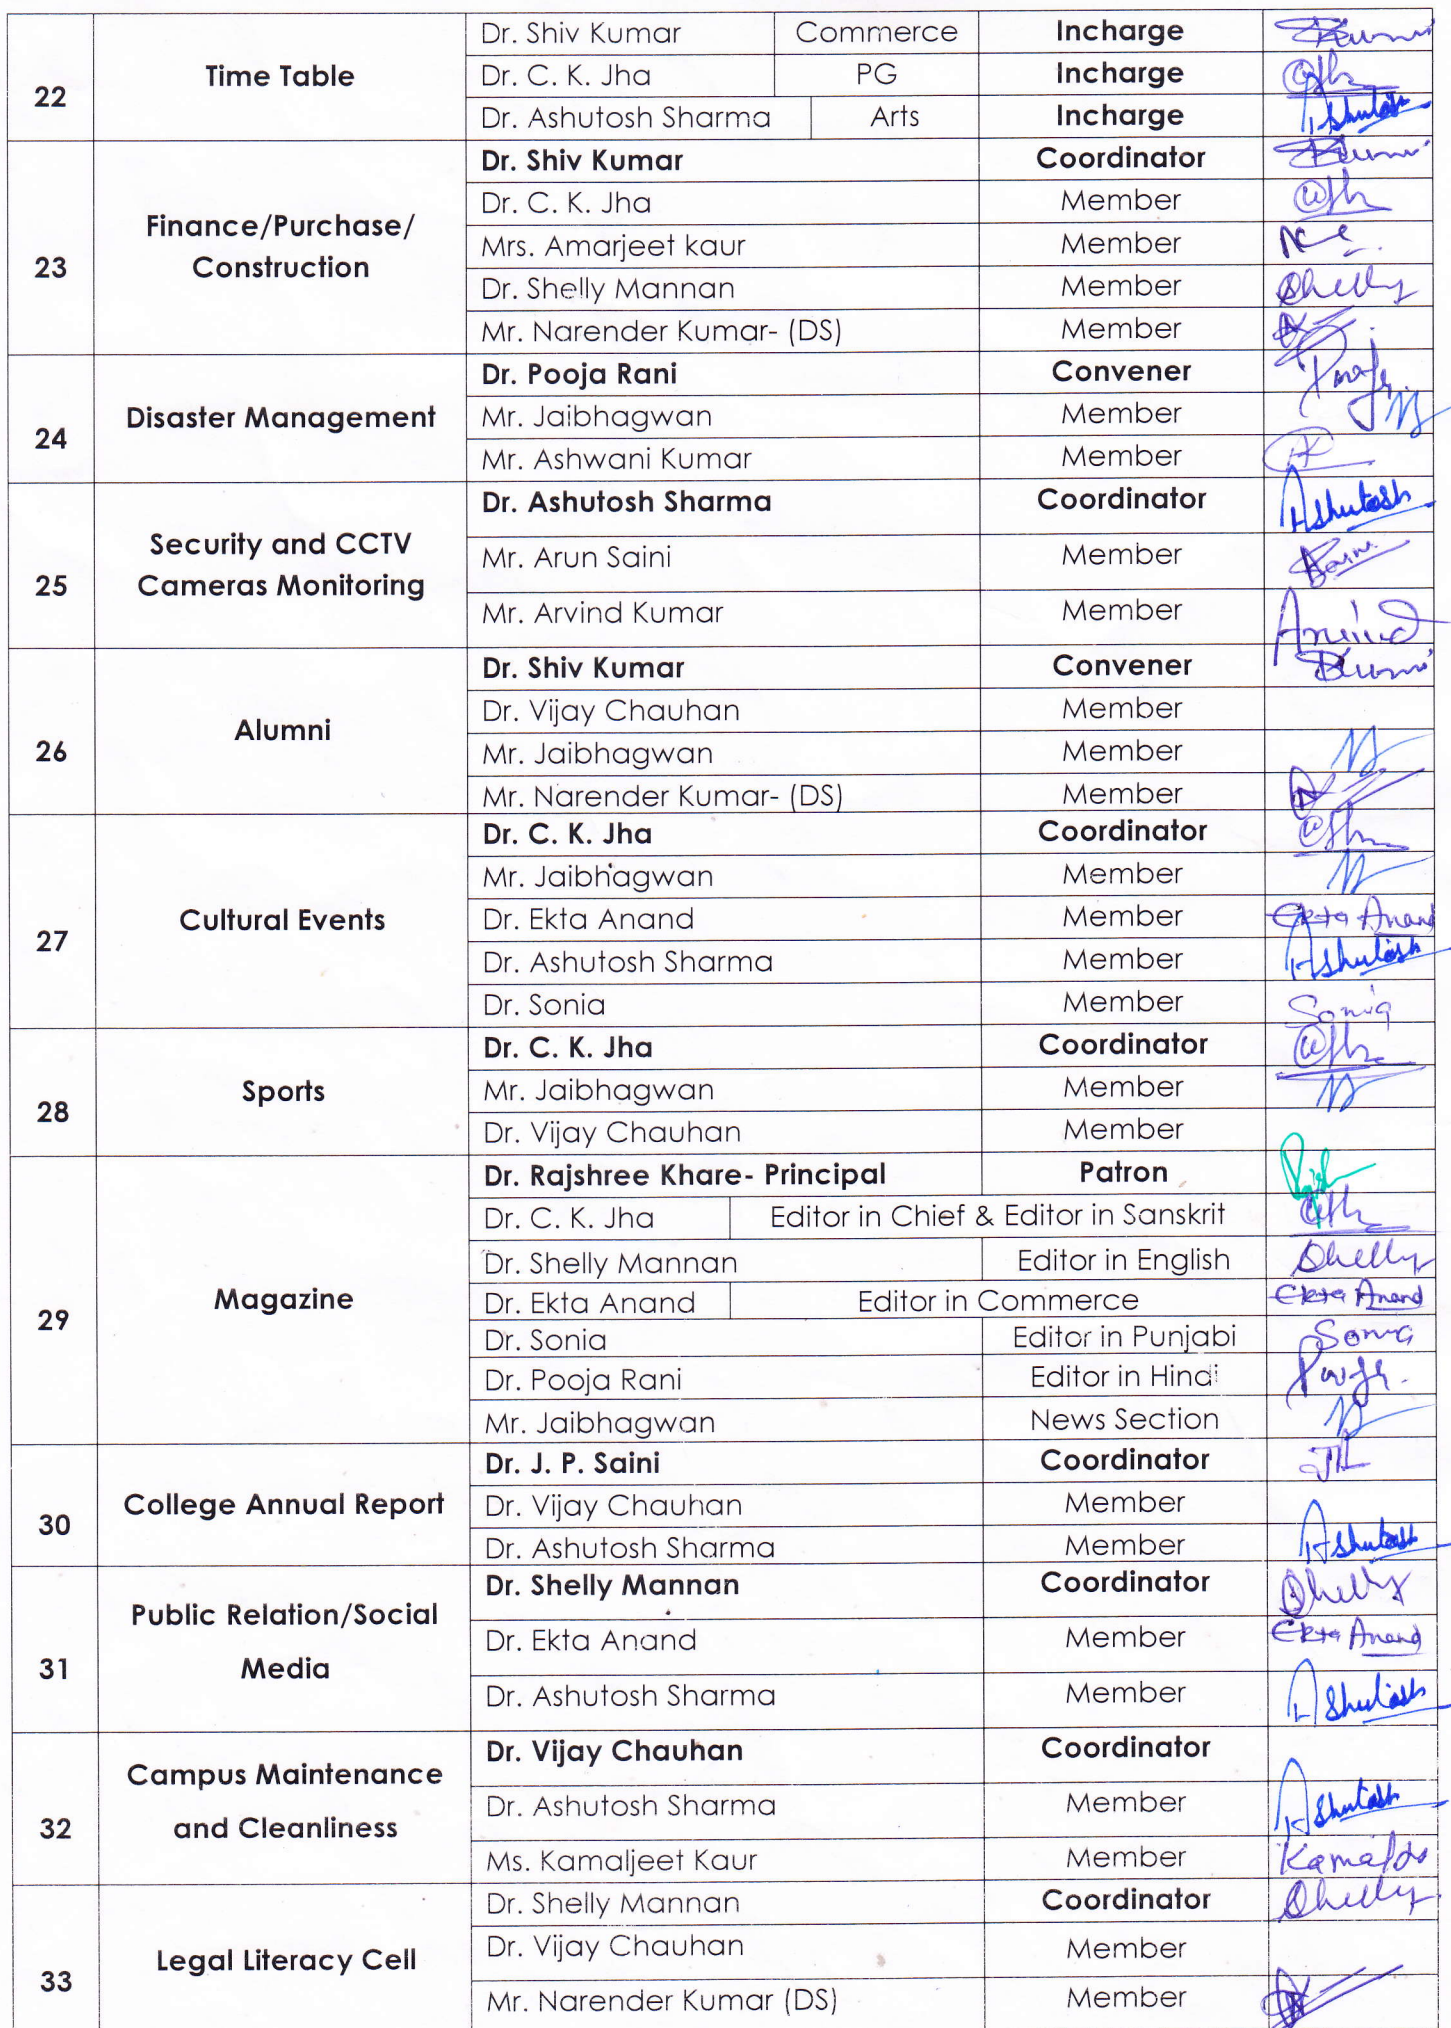 22 Time Table Dr. Shiv Kumar Commerce Incharge
Dr. C. K. Jha PG Incharge
Dr. Ashutosh Sharma Arts Incharge Ashutosh
23 Finance/Purchase/ Construction Dr. Shiv Kumar Coordinator
Dr. C. K. Jha Member
Mrs. Amarjeet kaur Member
Dr. Shelly Mannan Member Shelly
Mr. Narender Kumar- (DS) Member
24 Disaster Management Dr. Pooja Rani Convener
Mr. Jaibhagwan Member
Mr. Ashwani Kumar Member
25 Security and CCTV Cameras Monitoring Dr. Ashutosh Sharma Coordinator Ashutosh
Mr. Arun Saini Member
Mr. Arvind Kumar Member Arvind
26 Alumni Dr. Shiv Kumar Convener
Dr. Vijay Chauhan Member
Mr. Jaibhagwan Member
Mr. Narender Kumar- (DS) Member
27 Cultural Events Dr. C. K. Jha Coordinator
Mr. Jaibhagwan Member
Dr. Ekta Anand Member Ekta Anand
Dr. Ashutosh Sharma Member Ashutosh
Dr. Sonia Member Sonia
28 Sports Dr. C. K. Jha Coordinator
Mr. Jaibhagwan Member
Dr. Vijay Chauhan Member
29 Magazine Dr. Rajshree Khare- Principal Patron
Dr. C. K. Jha Editor in Chief & Editor in Sanskrit
Dr. Shelly Mannan Editor in English Shelly
Dr. Ekta Anand Editor in Commerce Ekta Anand
Dr. Sonia Editor in Punjabi Sonia
Dr. Pooja Rani Editor in Hindi
Mr. Jaibhagwan News Section
30 College Annual Report Dr. J. P. Saini Coordinator
Dr. Vijay Chauhan Member
Dr. Ashutosh Sharma Member Ashutosh
31 Public Relation/Social Media Dr. Shelly Mannan Coordinator Shelly
Dr. Ekta Anand Member Ekta Anand
Dr. Ashutosh Sharma Member Ashutosh
32 Campus Maintenance and Cleanliness Dr. Vijay Chauhan Coordinator
Dr. Ashutosh Sharma Member Ashutosh
Ms. Kamaljeet Kaur Member
33 Legal Literacy Cell Dr. Shelly Mannan Coordinator Shelly
Dr. Vijay Chauhan Member
Mr. Narender Kumar (DS) Member